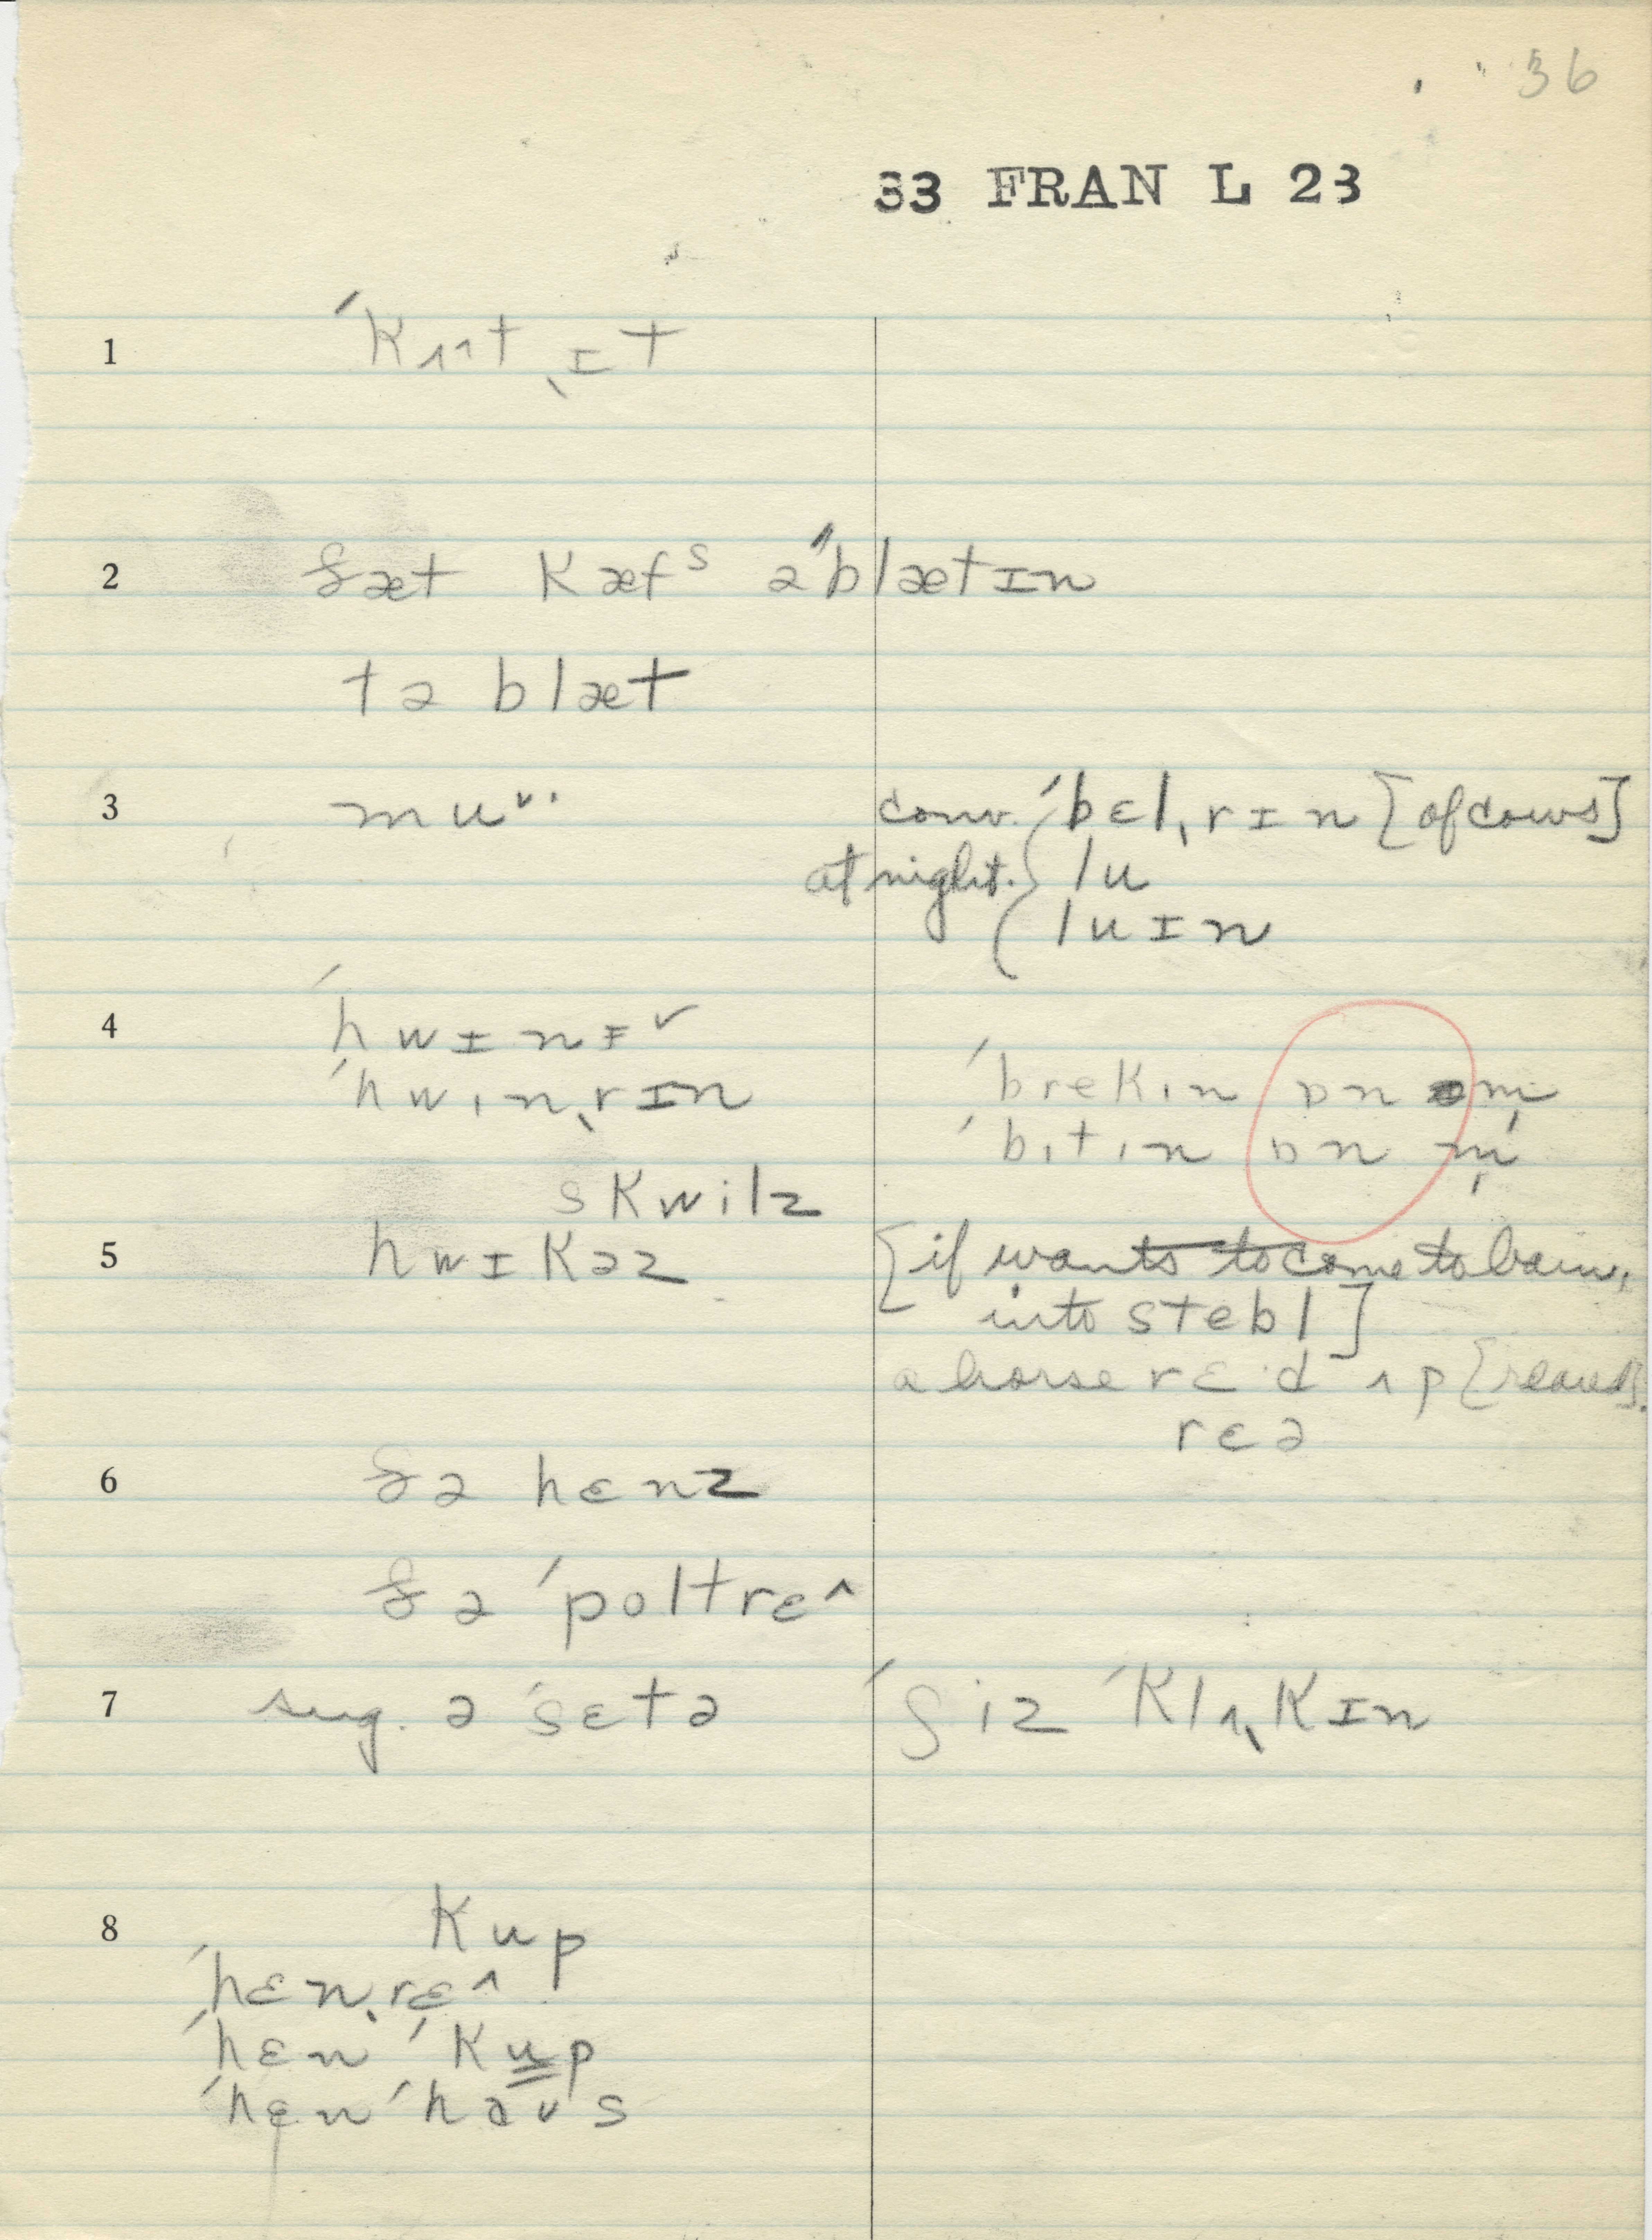 36
33 FRAN L 23
1 ˈkʌt ɪt
2 ðæt kæfˢ əˈblætɪn
tə blæt
3 mu conv. ˈbɛlˌrɪn [of cows]
at night. lu
luɪn
4 ˈhwɪnɪ˅
ˈhwɪnˌrɪn ˈbrekɪn ɒn əm
ˈbɪtɪn ɒn m̩
skwilz
5 hwɪkəz [if wants to come to barn,
into stebl]
a horse rɛ·d ʌp [reared].
rɛə
6 ðə hɛnz
ðə ˈpoltrɛ^
7 sug. ə ˈsɛtə ʃiz ˈklʌˌkɪn
8 kup
ˈhɛnˌrɛ^
ˈhɛn ˈkup
ˈhɛn ˈhaʊs